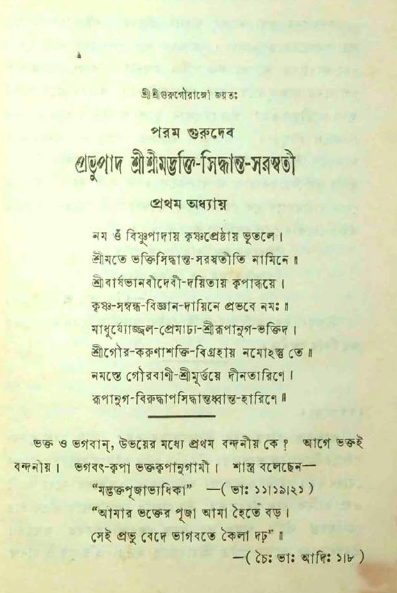 শ্রীশ্রীগুরুগৌরাঙ্গৌ জয়তঃ
পরম গুরুদেব
প্রভুপাদ শ্রীশ্রীমদ্ভক্তি-সিদ্ধান্ত-সরস্বতী
প্রথম অধ্যায়
নম ওঁ বিষ্ণুপাদায় কৃষ্ণপ্রেষ্ঠায় ভূতলে।
শ্রীমতে ভক্তিসিদ্ধান্ত-সরস্বতীতি নামিনে॥
শ্রীবার্ষভানবীদেবী-দয়িতায় কৃপাব্ধয়ে।
কৃষ্ণ-সম্বন্ধ-বিজ্ঞান-দায়িনে প্রভবে নমঃ॥
মাধুর্য্যোজ্জ্বল-প্রেমাঢ্য-শ্রীরূপানুগ-ভক্তিদ।
শ্রীগৌর-করুণাশক্তি-বিগ্রহায় নমোহস্তু তে॥
নমস্তে গৌরবাণী-শ্রীমূর্ত্তয়ে দীনতারিণে।
রূপানুগ-বিরুদ্ধাপসিদ্ধান্তধ্বান্ত-হারিণে॥
ভক্ত ও ভগবান্, উভয়ের মধ্যে প্রথম বন্দনীয় কে? আগে ভক্তই
বন্দনীয়। ভগবৎ-কৃপা ভক্তকৃপানুগামী। শাস্ত্র বলেছেন—
“মদ্ভক্তপূজাভ্যধিকা” —(ভাঃ ১১।১৯।২১)
“আমার ভক্তের পূজা আমা হৈতে বড়।
সেই প্রভু বেদে ভাগবতে কৈলা দঢ়”॥
—(চৈঃ ভাঃ আদিঃ ১।৮)